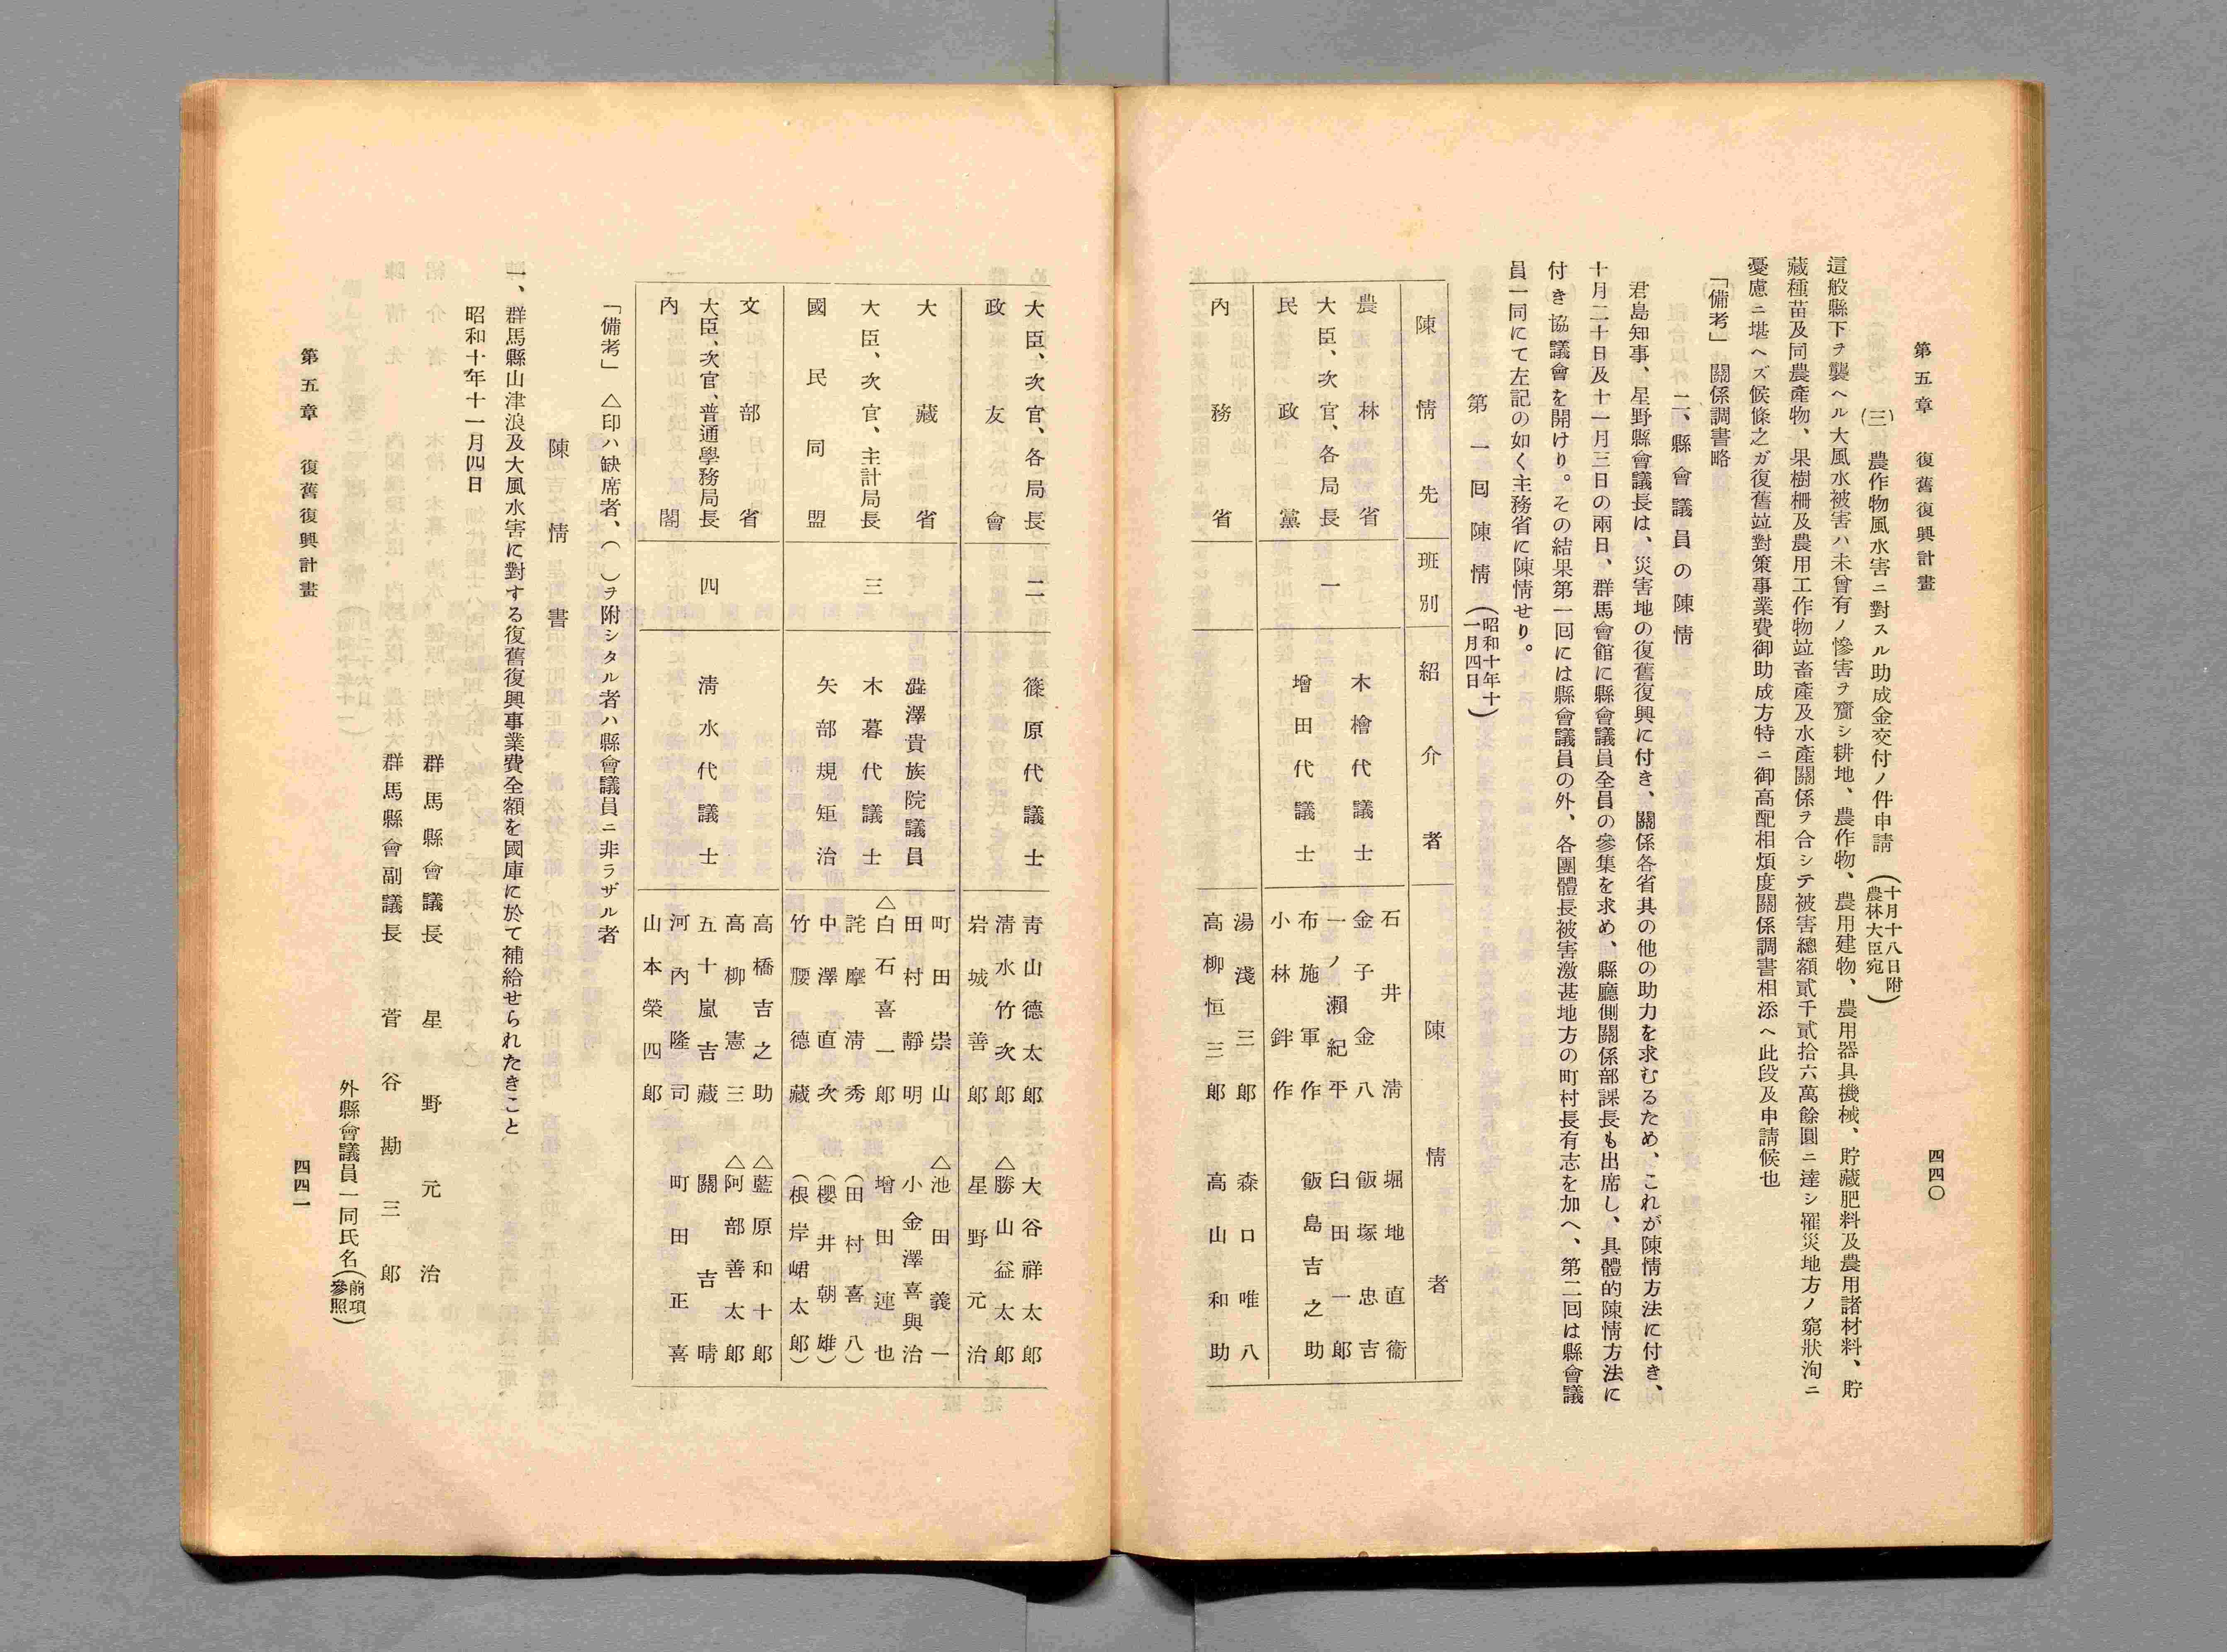 第五章　復舊復興計畫
四四〇
(三) 農作物風水害ニ對スル助成金交付ノ件申請 (十月十八日附農林大臣宛)
這般縣下ヲ襲ヘル大風水被害ハ未曾有ノ慘害ヲ齎シ耕地、農作物、農用建物、農用器具機械、貯藏肥料及農用諸材料、貯
藏種苗及同農產物、果樹柵及農用工作物竝畜產及水產關係ヲ合シテ被害總額貳千貳拾六萬餘圓ニ達シ罹災地方ノ窮狀洵ニ
憂慮ニ堪ヘズ候條之ガ復舊竝對策事業費御助成方特ニ御高配相煩度關係調書相添ヘ此段及申請候也
「備考」關係調書略
二、縣會議員の陳情
君島知事、星野縣會議長は、災害地の復舊復興に付き、關係各省其の他の助力を求むるため、これが陳情方法に付き、
十月二十日及十一月三日の兩日、群馬會館に縣會議員全員の參集を求め、縣廳側關係部課長も出席し、具體的陳情方法に
付き協議會を開けり。その結果第一回には縣會議員の外、各團體長被害激甚地方の町村長有志を加へ、第二回は縣會議
員一同にて左記の如く主務省に陳情せり。
第一回陳情 (昭和十年十一月四日)
陳情先　班別　紹介者　陳情者
農林省　木檜代議士　石井清　堀地直衞
大臣、次官、各局長　一　金子金八　飯塚忠吉
一ノ瀨紀平　臼田一郞
民政黨　增田代議士　布施軍作　飯島吉之助
小林鉡作
內務省　湯淺三郞　森口唯八
高柳恒三郞　高山和助
大臣、次官、各局長　二　篠原代議士　靑山德太郞　大谷祥太郞
淸水竹次郞　△勝山益太郞
政友會　岩城善郞　星野元治
大藏省　澁澤貴族院議員　町田崇山　△池田義一
田村靜明　小金澤喜興治
大臣、次官、主計局長　三　木暮代議士　△白石喜一郞　增田連也
詫摩淸秀　(田村喜八)
國民同盟　矢部規矩治　中澤直次　(櫻井朝雄)
竹腰德藏　(根岸峮太郞)
文部省　高橋吉之助　△藍原和十郞
高柳憲三　△阿部善太郞
大臣、次官、普通學務局長　四　淸水代議士　五十嵐吉藏　關吉晴
河內隆司　町田正喜
內閣　山本榮四郞
「備考」　△印ハ缺席者、(　)ヲ附シタル者ハ縣會議員ニ非ラザル者
陳情書
一、群馬縣山津浪及大風水害に對する復舊復興事業費全額を國庫に於て補給せられたきこと
昭和十年十一月四日
群馬縣會議長　星野元治
群馬縣會副議長　菅谷勘三郞
外縣會議員一同氏名(前項參照)
第五章　復舊復興計畫
四四一